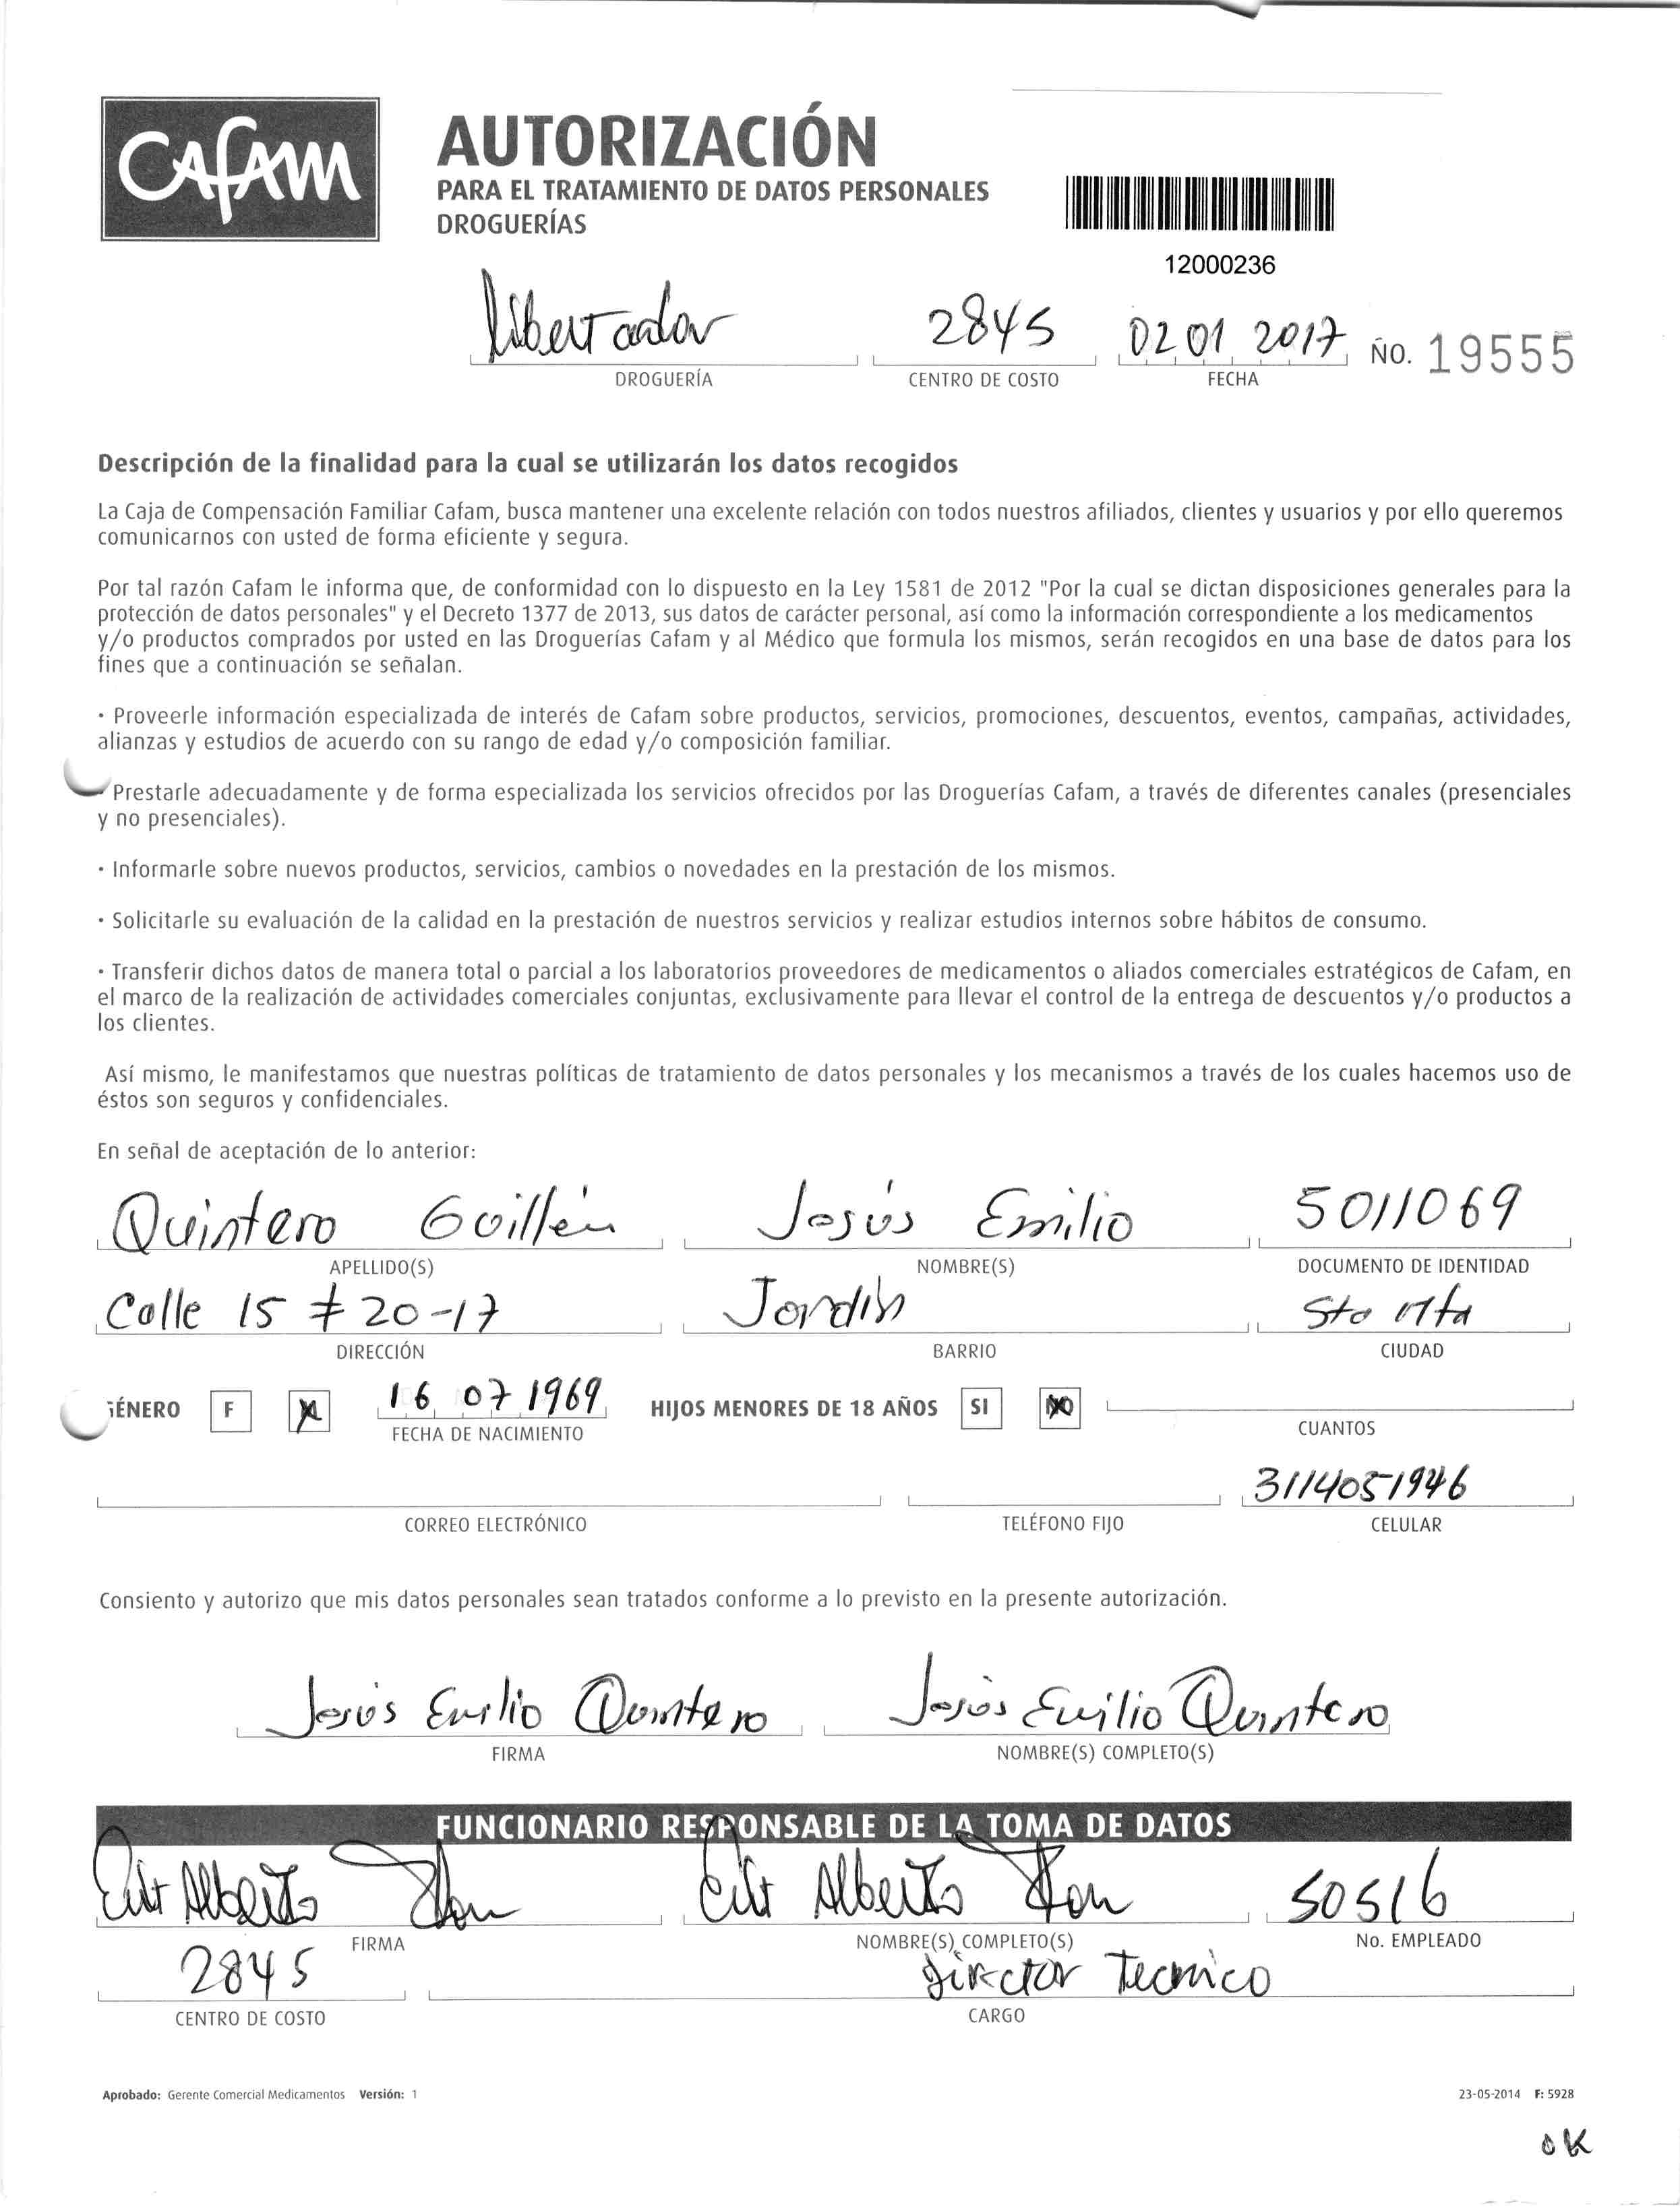 Cafam
AUTORIZACIÓN
PARA EL TRATAMIENTO DE DATOS PERSONALES
DROGUERÍAS
12000236
Libertador 2845 02 01 2017 No. 19555
DROGUERÍA CENTRO DE COSTO FECHA
Descripción de la finalidad para la cual se utilizarán los datos recogidos
La Caja de Compensación Familiar Cafam, busca mantener una excelente relación con todos nuestros afiliados, clientes y usuarios y por ello queremos
comunicarnos con usted de forma eficiente y segura.
Por tal razón Cafam le informa que, de conformidad con lo dispuesto en la Ley 1581 de 2012 "Por la cual se dictan disposiciones generales para la
protección de datos personales" y el Decreto 1377 de 2013, sus datos de carácter personal, así como la información correspondiente a los medicamentos
y/o productos comprados por usted en las Droguerías Cafam y al Médico que formula los mismos, serán recogidos en una base de datos para los
fines que a continuación se señalan.
· Proveerle información especializada de interés de Cafam sobre productos, servicios, promociones, descuentos, eventos, campañas, actividades,
alianzas y estudios de acuerdo con su rango de edad y/o composición familiar.
Prestarle adecuadamente y de forma especializada los servicios ofrecidos por las Droguerías Cafam, a través de diferentes canales (presenciales
y no presenciales).
· Informarle sobre nuevos productos, servicios, cambios o novedades en la prestación de los mismos.
· Solicitarle su evaluación de la calidad en la prestación de nuestros servicios y realizar estudios internos sobre hábitos de consumo.
· Transferir dichos datos de manera total o parcial a los laboratorios proveedores de medicamentos o aliados comerciales estratégicos de Cafam, en
el marco de la realización de actividades comerciales conjuntas, exclusivamente para llevar el control de la entrega de descuentos y/o productos a
los clientes.
Así mismo, le manifestamos que nuestras políticas de tratamiento de datos personales y los mecanismos a través de los cuales hacemos uso de
éstos son seguros y confidenciales.
En señal de aceptación de lo anterior:
Quintero Guillén Jesús Emilio 5011069
APELLIDO(S) NOMBRE(S) DOCUMENTO DE IDENTIDAD
Calle 15 # 20-17 Jardín Sta Mta
DIRECCIÓN BARRIO CIUDAD
GÉNERO F M 16 07 1969 HIJOS MENORES DE 18 AÑOS SI NO
FECHA DE NACIMIENTO CUANTOS
3114051946
CORREO ELECTRÓNICO TELÉFONO FIJO CELULAR
Consiento y autorizo que mis datos personales sean tratados conforme a lo previsto en la presente autorización.
Jesús Emilio Quintero Jesús Emilio Quintero
FIRMA NOMBRE(S) COMPLETO(S)
FUNCIONARIO RESPONSABLE DE LA TOMA DE DATOS
Alberto Alberto 50516
FIRMA NOMBRE(S) COMPLETO(S) No. EMPLEADO
2845 Director Tecnico
CENTRO DE COSTO CARGO
Aprobado: Gerente Comercial Medicamentos Versión: 1 23-05-2014 F: 5928
OK